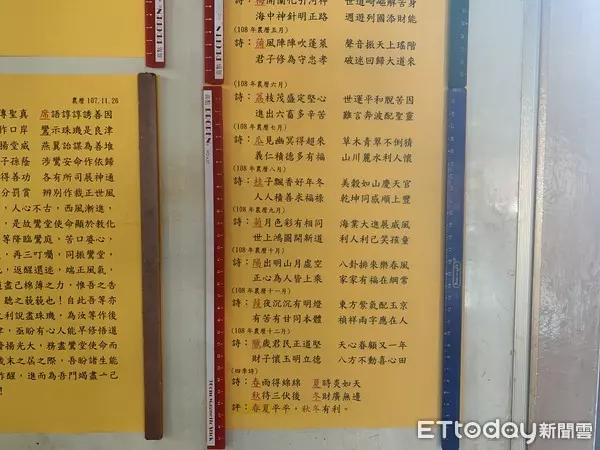 海中神針明正路 週遊列國添財能
(108 年農曆五月)
詩：蒲風陣陣吹蓬萊 聲音振天上瑤階
君子修為守忠孝 破迷回歸大道來
(108 年農曆六月)
詩：荔枝茂盛定堅心 世運平和脫苦因
進出六畜多辛苦 難言奔波配聖靈
(108 年農曆七月)
詩：瓜見幽冥得超來 草木青翠不倒猜
義仁積德多有福 山川麗水利人懷
(108 年農曆八月)
詩：桂子飄香好年冬 美穀如山慶天官
人人積善求福祿 乾坤同感順上豐
(108 年農曆九月)
詩：菊月色彩有相同 海業大進展威風
世上鴻圖開新道 利人利己笑孩童
(108 年農曆十月)
詩：陽出明山月虛空 八卦排來樂春風
正心為人皆上乘 家家有福在綱常
(108 年農曆十一月)
詩：葭夜沉沉有明燈 東方紫氣配玉京
有苦有甘同本體 禎祥兩字應在人
(108 年農曆十二月)
詩：臘歲君民正道堅 天心春顧又一年
財子懷玉明立德 八方不動喜心田
(四季詩)
詩：春雨得綿綿 夏時炎如天
秋待三伏後 冬財廣無邊
評：春夏平平，秋冬有利。
農曆 107.11.26
席語諄諄誘善因
鸞示珠璣是良津
燕翼詒謀為善堆
涉鸞安命作依歸
各有所司展神通
辨別作栽正世風
，人心不古，西風漸進，
，是故鸞堂使命顯於教化
等降臨鸞庭，苦口婆心，
，再三叮嚀，同振鸞堂，
，返醒還迷，端正風氣，
盡己綿薄之力，惟吾之告
聽之藐藐也！自此吾等亦
之利說盡珠璣，為汝等作後
，亟盼有心人能早修悟道
揚光大，務盡鸞堂使命而
歲末之茲之際，吾盼諸生能
作醒，進而為吾門竭盡一己
ETtoday新聞雲